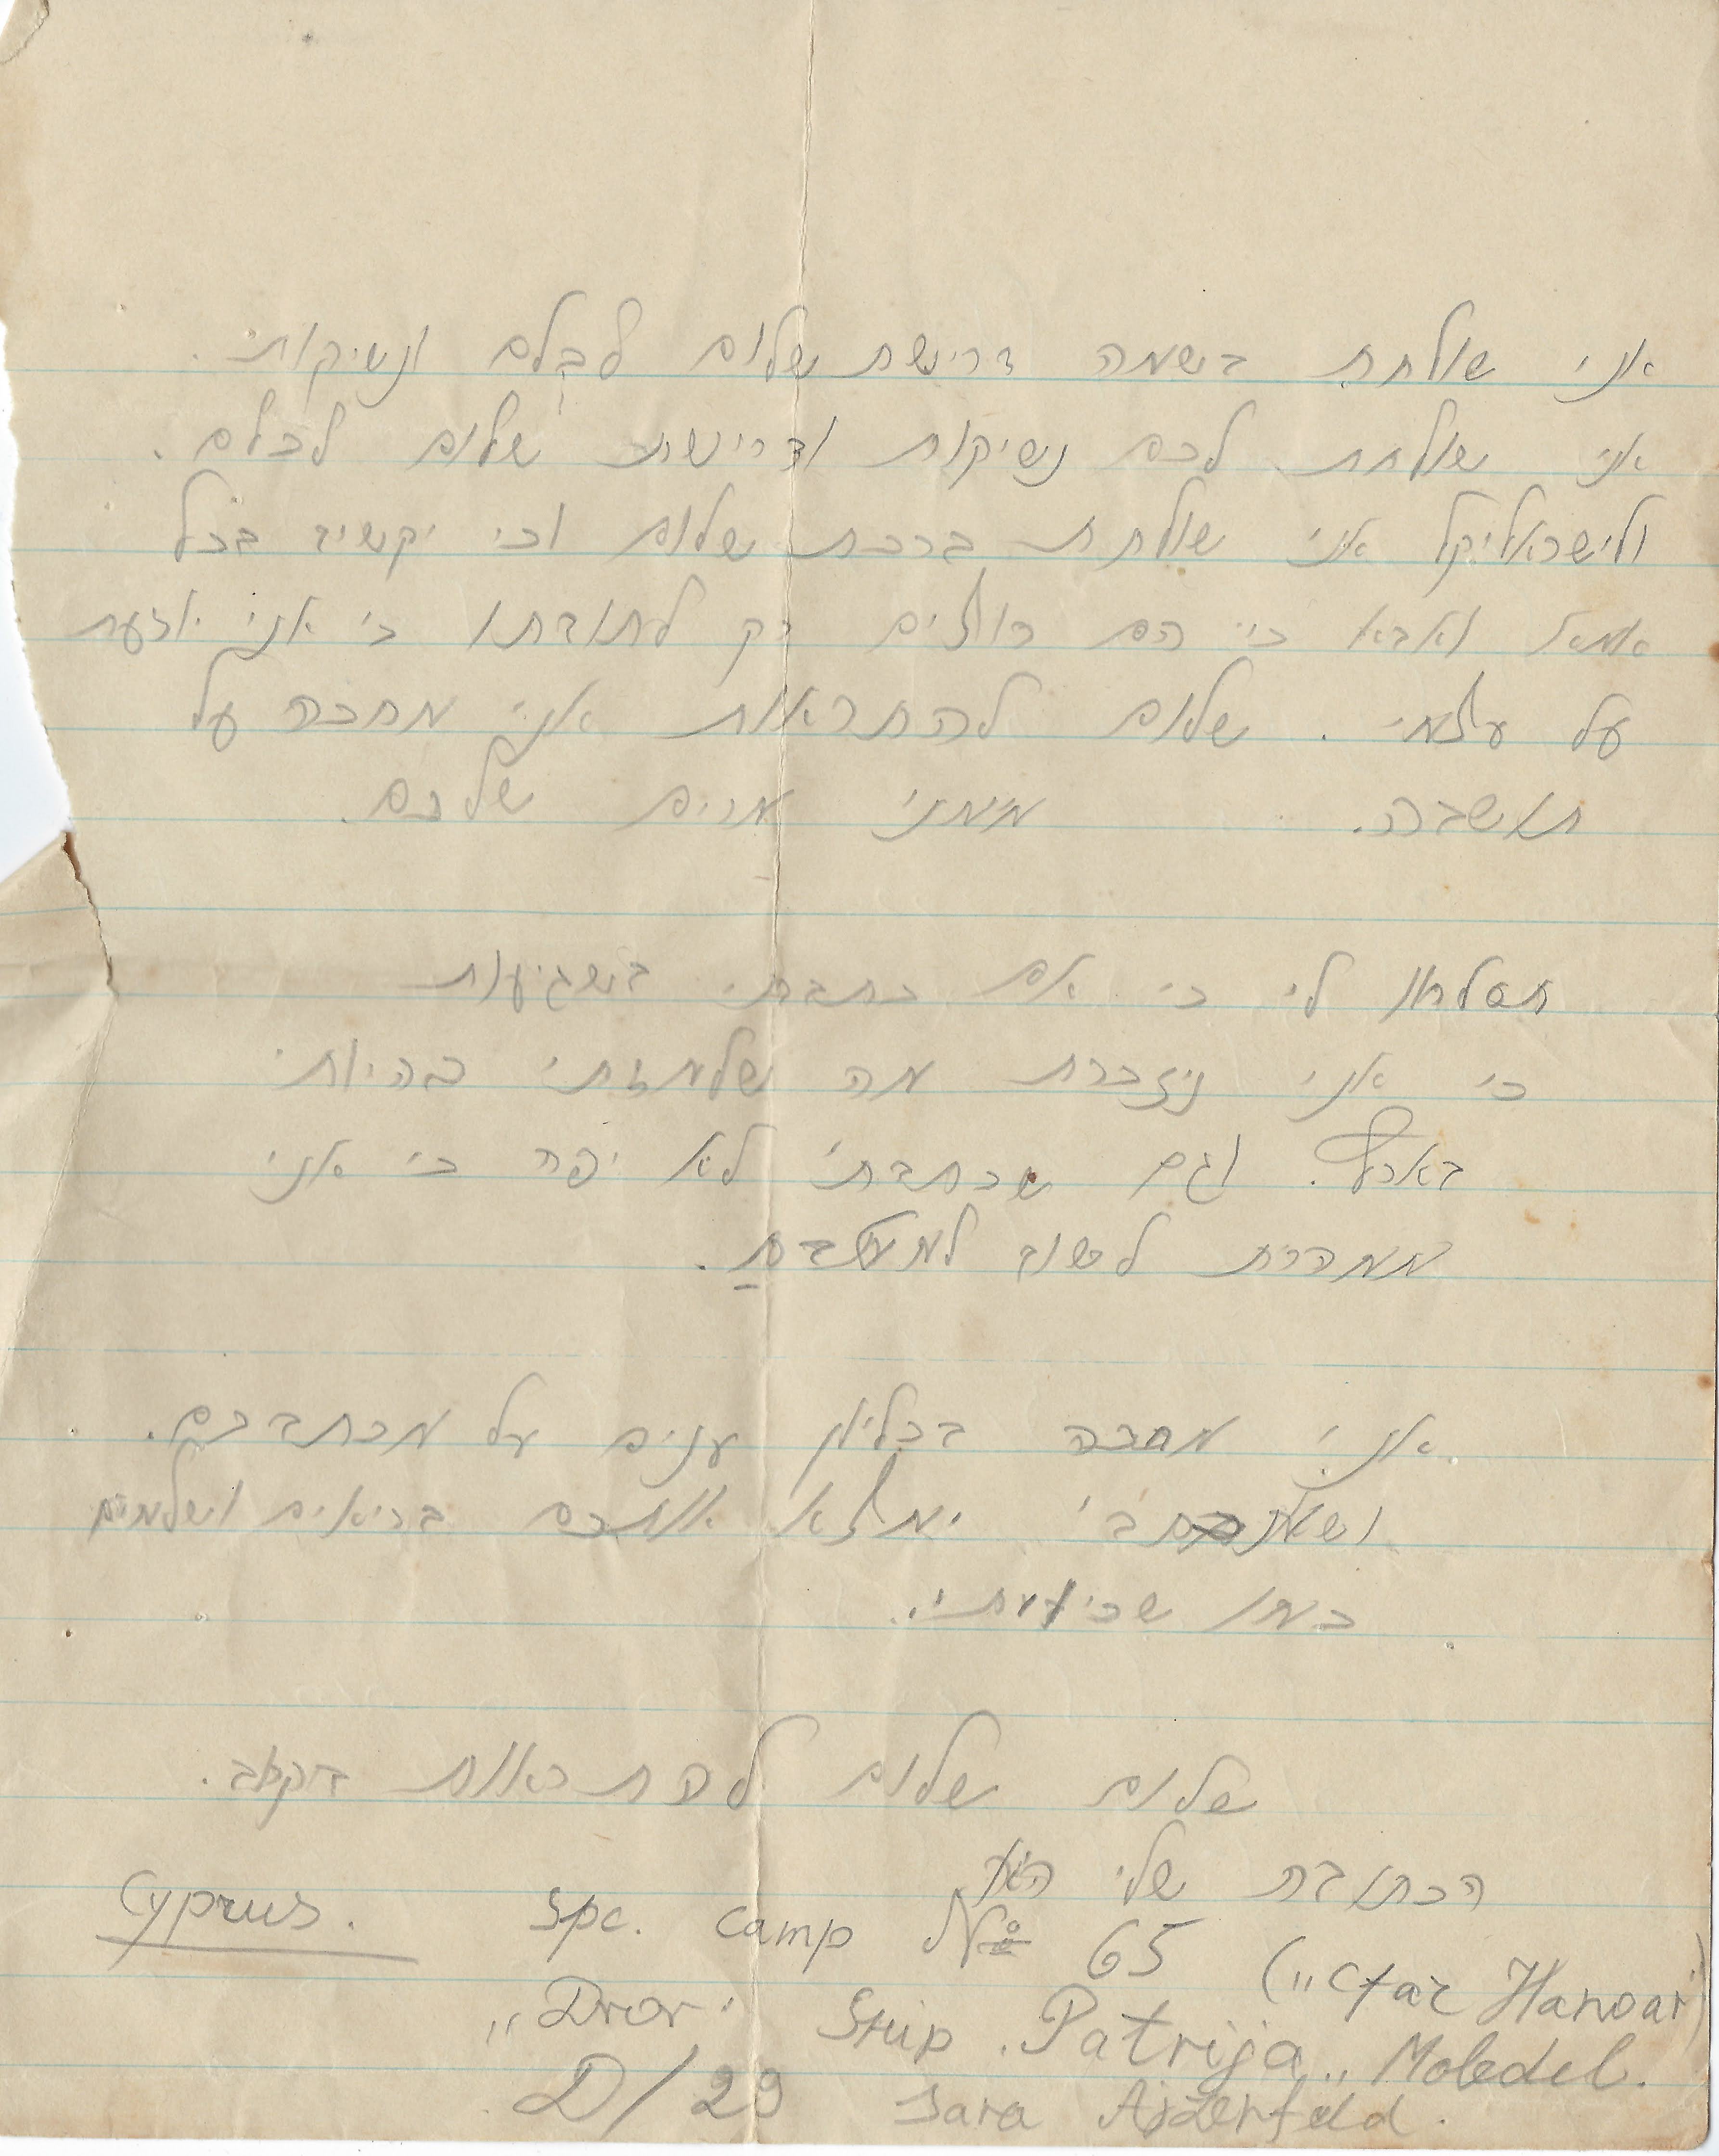 אני שולחת בשמה דרישת שלום לכלם ונשיקות.
אני שולחת לכם נשיקות ודרישת שלום לכלם.
ולישראליקל אני שולחת ברכת שלום וכי יקשיב בכל
אמא ואבא כי הם רוצים רק לתובתו כי אני יודעת
על עצמי. שלום להתראות אני מחכה על
תשובה. ממני מרים שלכם.
תסלחו לי כי אם כתבתי בשגיעות
כי אני ניזכרת מה שלמדתי בהיותי
בארץ. וגם שכתבתי לא יפה כי אני
ממהרת לשוב
אני מחכה בכליון ענים על מכתבכם.
ימצא אותכם בריאים ושלמים
כמו
שלום שלום להתראות בקרוב.
הכתובת שלי היא
Cyprus. Spc. camp No 65 („Cfar Hanoar")
„Dror" Ship. Patrija „ Moledel.
D/29 Sara Ajzenfeld.